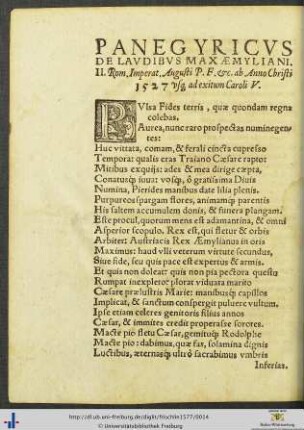 PANEGYRICVS
DE LAVDIBVS MAXÆMYLIANI.
II. Rom. Imperat. Augusti P. F. &c. ab Anno Christi
1527 vsq; ad exitum Caroli V.
PVlsa Fides terris, quæ quondam regna
colebas,
Aurea, nunc raro prospectas numine gen-
tes:
Huc vittata, comam, & ferali cincta cupresso
Tempora: qualis eras Traiano Cæsare rapto:
Mitibus exquijs: ades & mea dirige cæpta,
Conatusq; iuua: vosq;, ô gratissima Diuis
Numina, Pierides manibus date lilia plenis.
Purpureos spargam flores, animamq; parentis
His saltem accumulem donis, & funera plangam.
Est procul, quorum mens est adamantina, & omni
Asperior scopulo. Rex est, qui fletur & orbis
Arbiter: Austriacis Rex Æmylianus in oris
Maximus: haud vlli veterum virtute secundus,
Siue fide, seu quis pace est expertus & armis.
Et quis non doleat? quis non pia pectora questu
Rumpat inexpleto? plorat viduata marito
Cæsare prælustris Marie: manibusq; capillos
Implicat, & sanctum conspergit puluere vultum.
Ipse etiam celeres genitoris filius annos
Cæsar, & immites credit properasse sorores.
Macte pio fletu Cæsar, gemituq; Rodolphe
Macte pio: dabimus, quæ fas, solamina dignis
Luctibus, æternasq; vltrò sacrabimus vmbris
Inferias.
http://dl.ub.uni-freiburg.de/diglit/frischlin1577/0014
© Universitätsbibliothek Freiburg
Baden-Württemberg